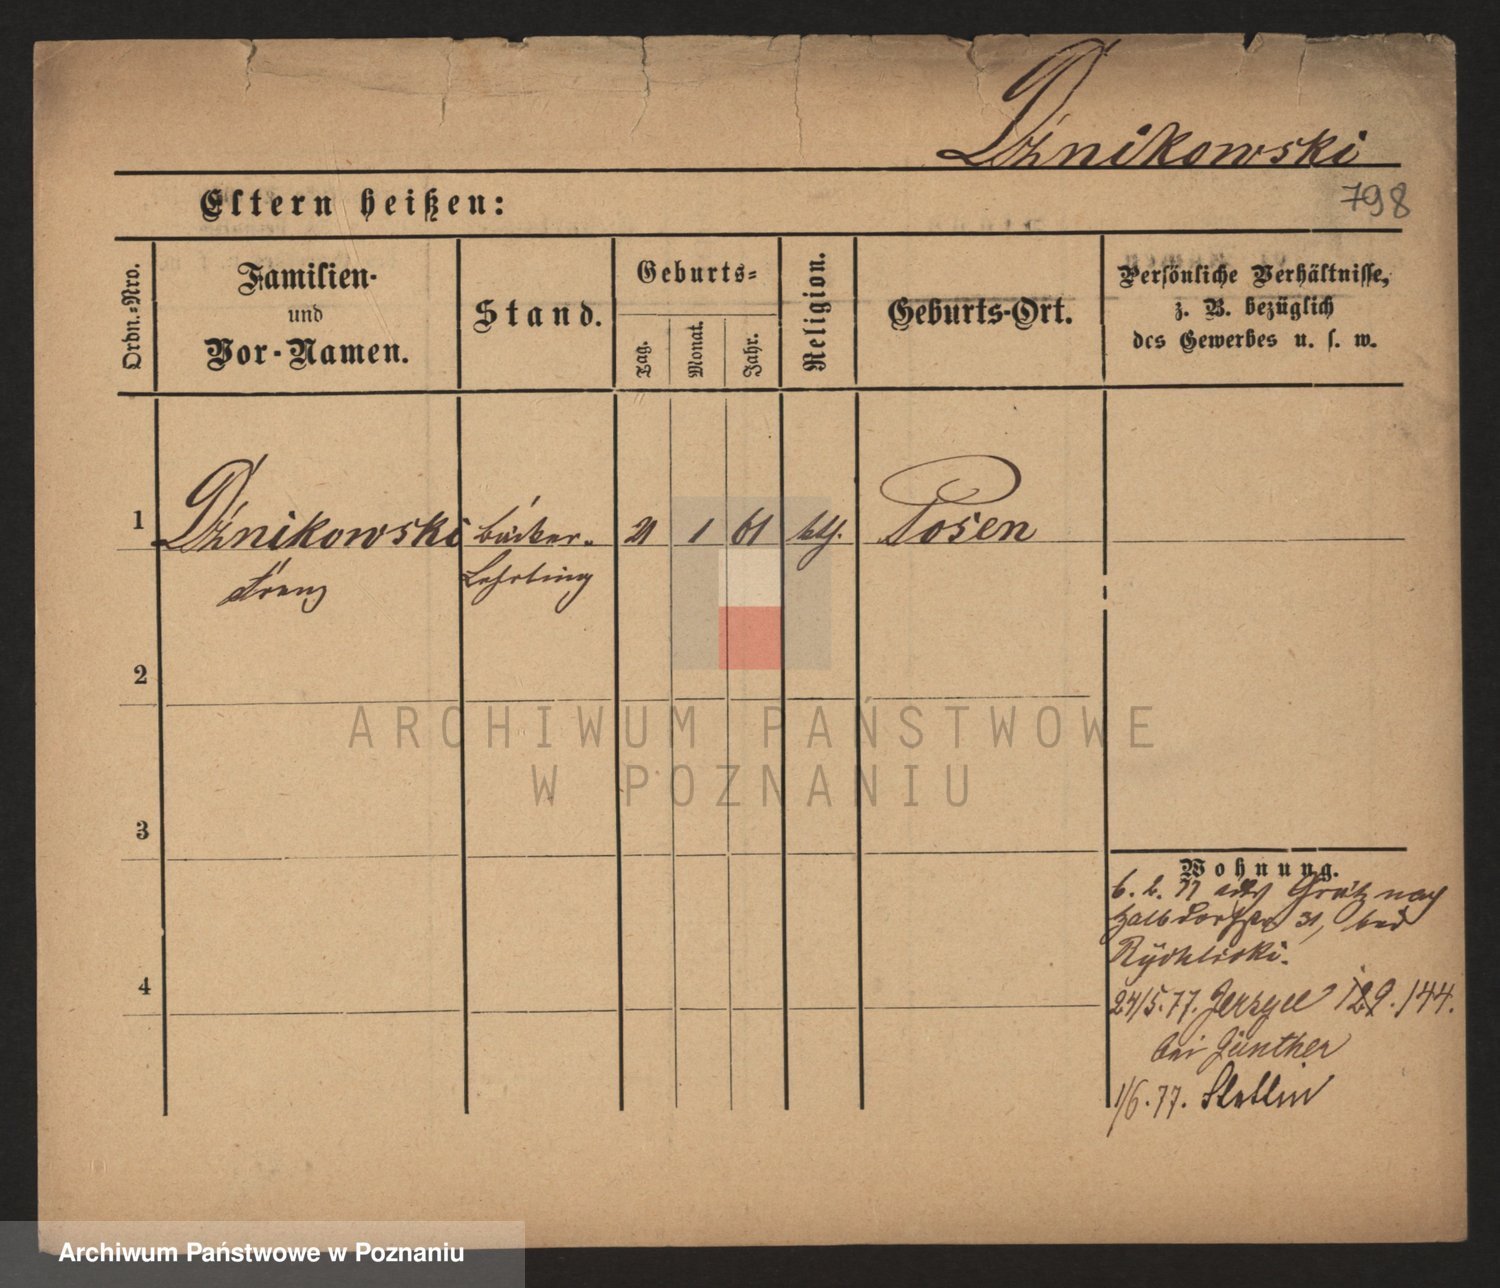 Dźnikowski
798
Eltern heißen:
Ordn.-Nro.
Familien-
und
Vor-Namen.
Stand.
Geburts-
Tag.
Monat.
Jahr.
Religion.
Geburts-Ort.
Persönliche Verhältnisse,
z. B. bezüglich
des Gewerbes u. s. w.
1
Dźnikowski
Franz
bäcker-
Lehrling
21
1
61
ktl.
Posen
2
3
4
ARCHIWUM PAŃSTWOWE
W POZNANIU
Wohnung.
6. 2. 77 Grätz nach
Halbdorfstr 31, bei
Rychliski.
24/5.77. Jerzyce 129./44.
bei Günther
1/6.77. Stettin
Archiwum Państwowe w Poznaniu